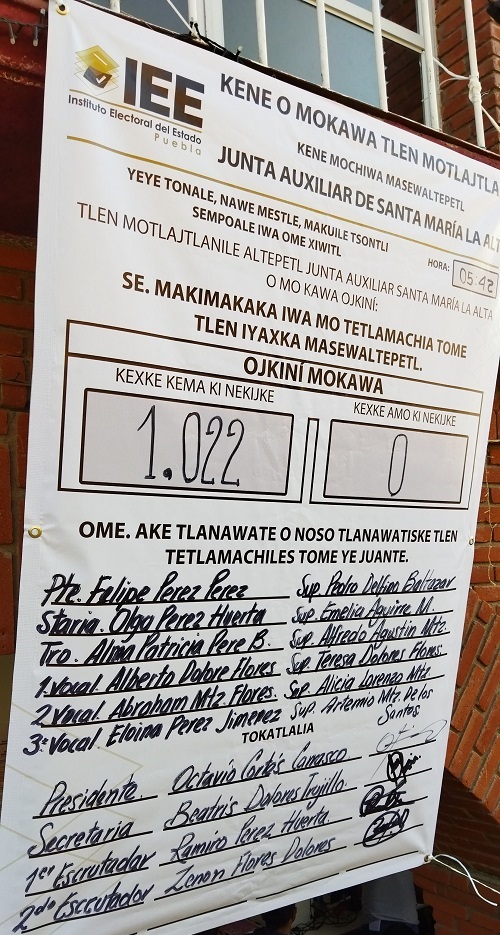 IEE
Instituto Electoral del Estado
Puebla
KENE O MOKAWA TLEN MOTLAJTLA
KENE MOCHIWA MASEWALTEPETL
JUNTA AUXILIAR DE SANTA MARÍA LA ALT
YEYE TONALE, NAWE MESTLE, MAKUILE TSONTLI
SEMPOALE IWA OME XIWITL
HORA: 05:42
TLEN MOTLAJTLANILE ALTEPETL JUNTA AUXILIAR SANTA MARÍA LA ALTA
O MO KAWA OJKINÍ:
SE. MAKIMAKAKA IWA MO TETLAMACHIA TOME
TLEN IYAXKA MASEWALTEPETL.
OJKINÍ MOKAWA
KEXKE KEMA KI NEKIJKE
KEXKE AMO KI NEKIJKE
1.022
0
OME. AKE TLANAWATE O NOSO TLANAWATISKE TLEN
TETLAMACHILES TOME YE JUANTE.
Pte. Felipe Perez Perez Sup. Pedro Delfino Baltazar
Staria. Olga Perez Huerta Sup. Emelia Aguirre M.
Tro. Alma Patricia Pere B. Sup. Alfredo Agustin Mtz.
1.Vocal Alberto Dolore Flores Sup. Teresa Dolores Flores.
2 Vocal. Abraham Mtz Flores. Sup. Alicia Lorenzo Mtz.
3º Vocal Eloina Perez Jimenez Sup. Artemio Mtz. De los
Santos
TOKATLALIA
Presidente. Octavio Cortés Carrasco
Secretaria Beatris Dolores Trujillo.
1er Escrutador Ramiro Perez Huerta.
2do Escrutador Zenon Flores Dolores